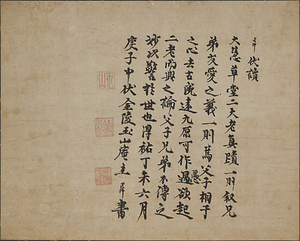 大慧草堂二大老真蹟一則叙兄
弟友愛之義一則篤父子相于
之心去古既遠九原可作過欲起
愚
二老而與之論父子兄弟不傳之
妙以警於世也淳祐丁未六月
庚子中伏金陵玉山庵主 書